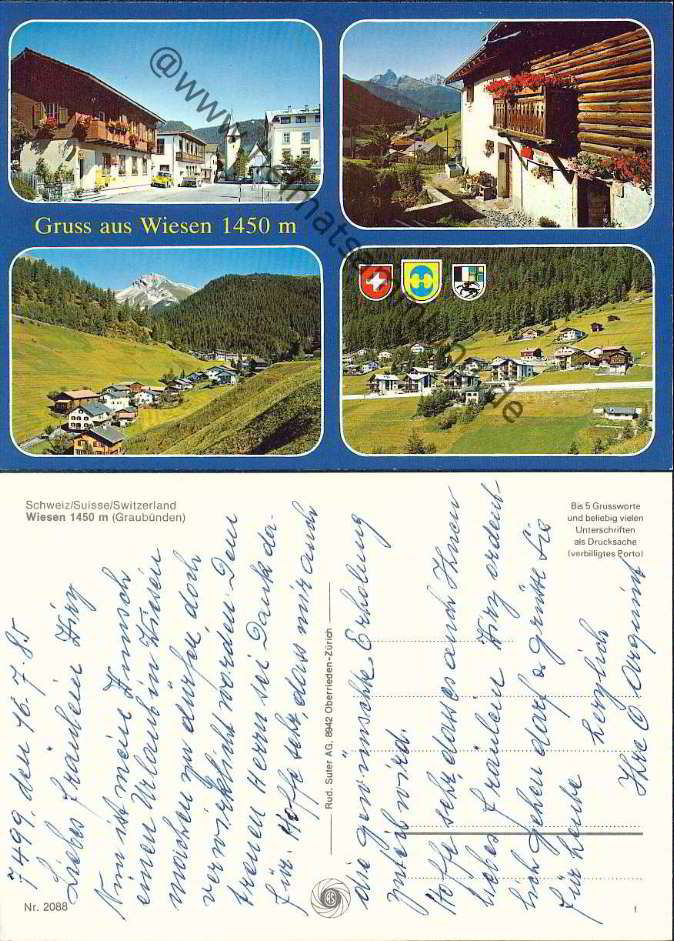 Gruss aus Wiesen 1450 m
Schweiz/Suisse/Switzerland
Wiesen 1450 m (Graubünden)
Bis 5 Grussworte
und beliebig vielen
Unterschriften
als Drucksache
(verbilligtes Porto)
7499, den 16.7.85
Liebes Fräulein
Nun ist mein Wunsch
einen Urlaub in Wiesen
machen zu dürfen doch
verwirklicht worden. Dem
treuen Herrn sei Dank da-
für. Hoffe sehr, dass mir auch
die gewünschte Erholung
zuteil wird.
Hoffe sehr dass es auch Ihnen
liebes Fräulein ordent-
lich gehen darf u. grüße Sie
für heute herzlich
Ihre O.
Rud. Suter AG, 8942 Oberrieden-Zürich
Nr. 2088
f